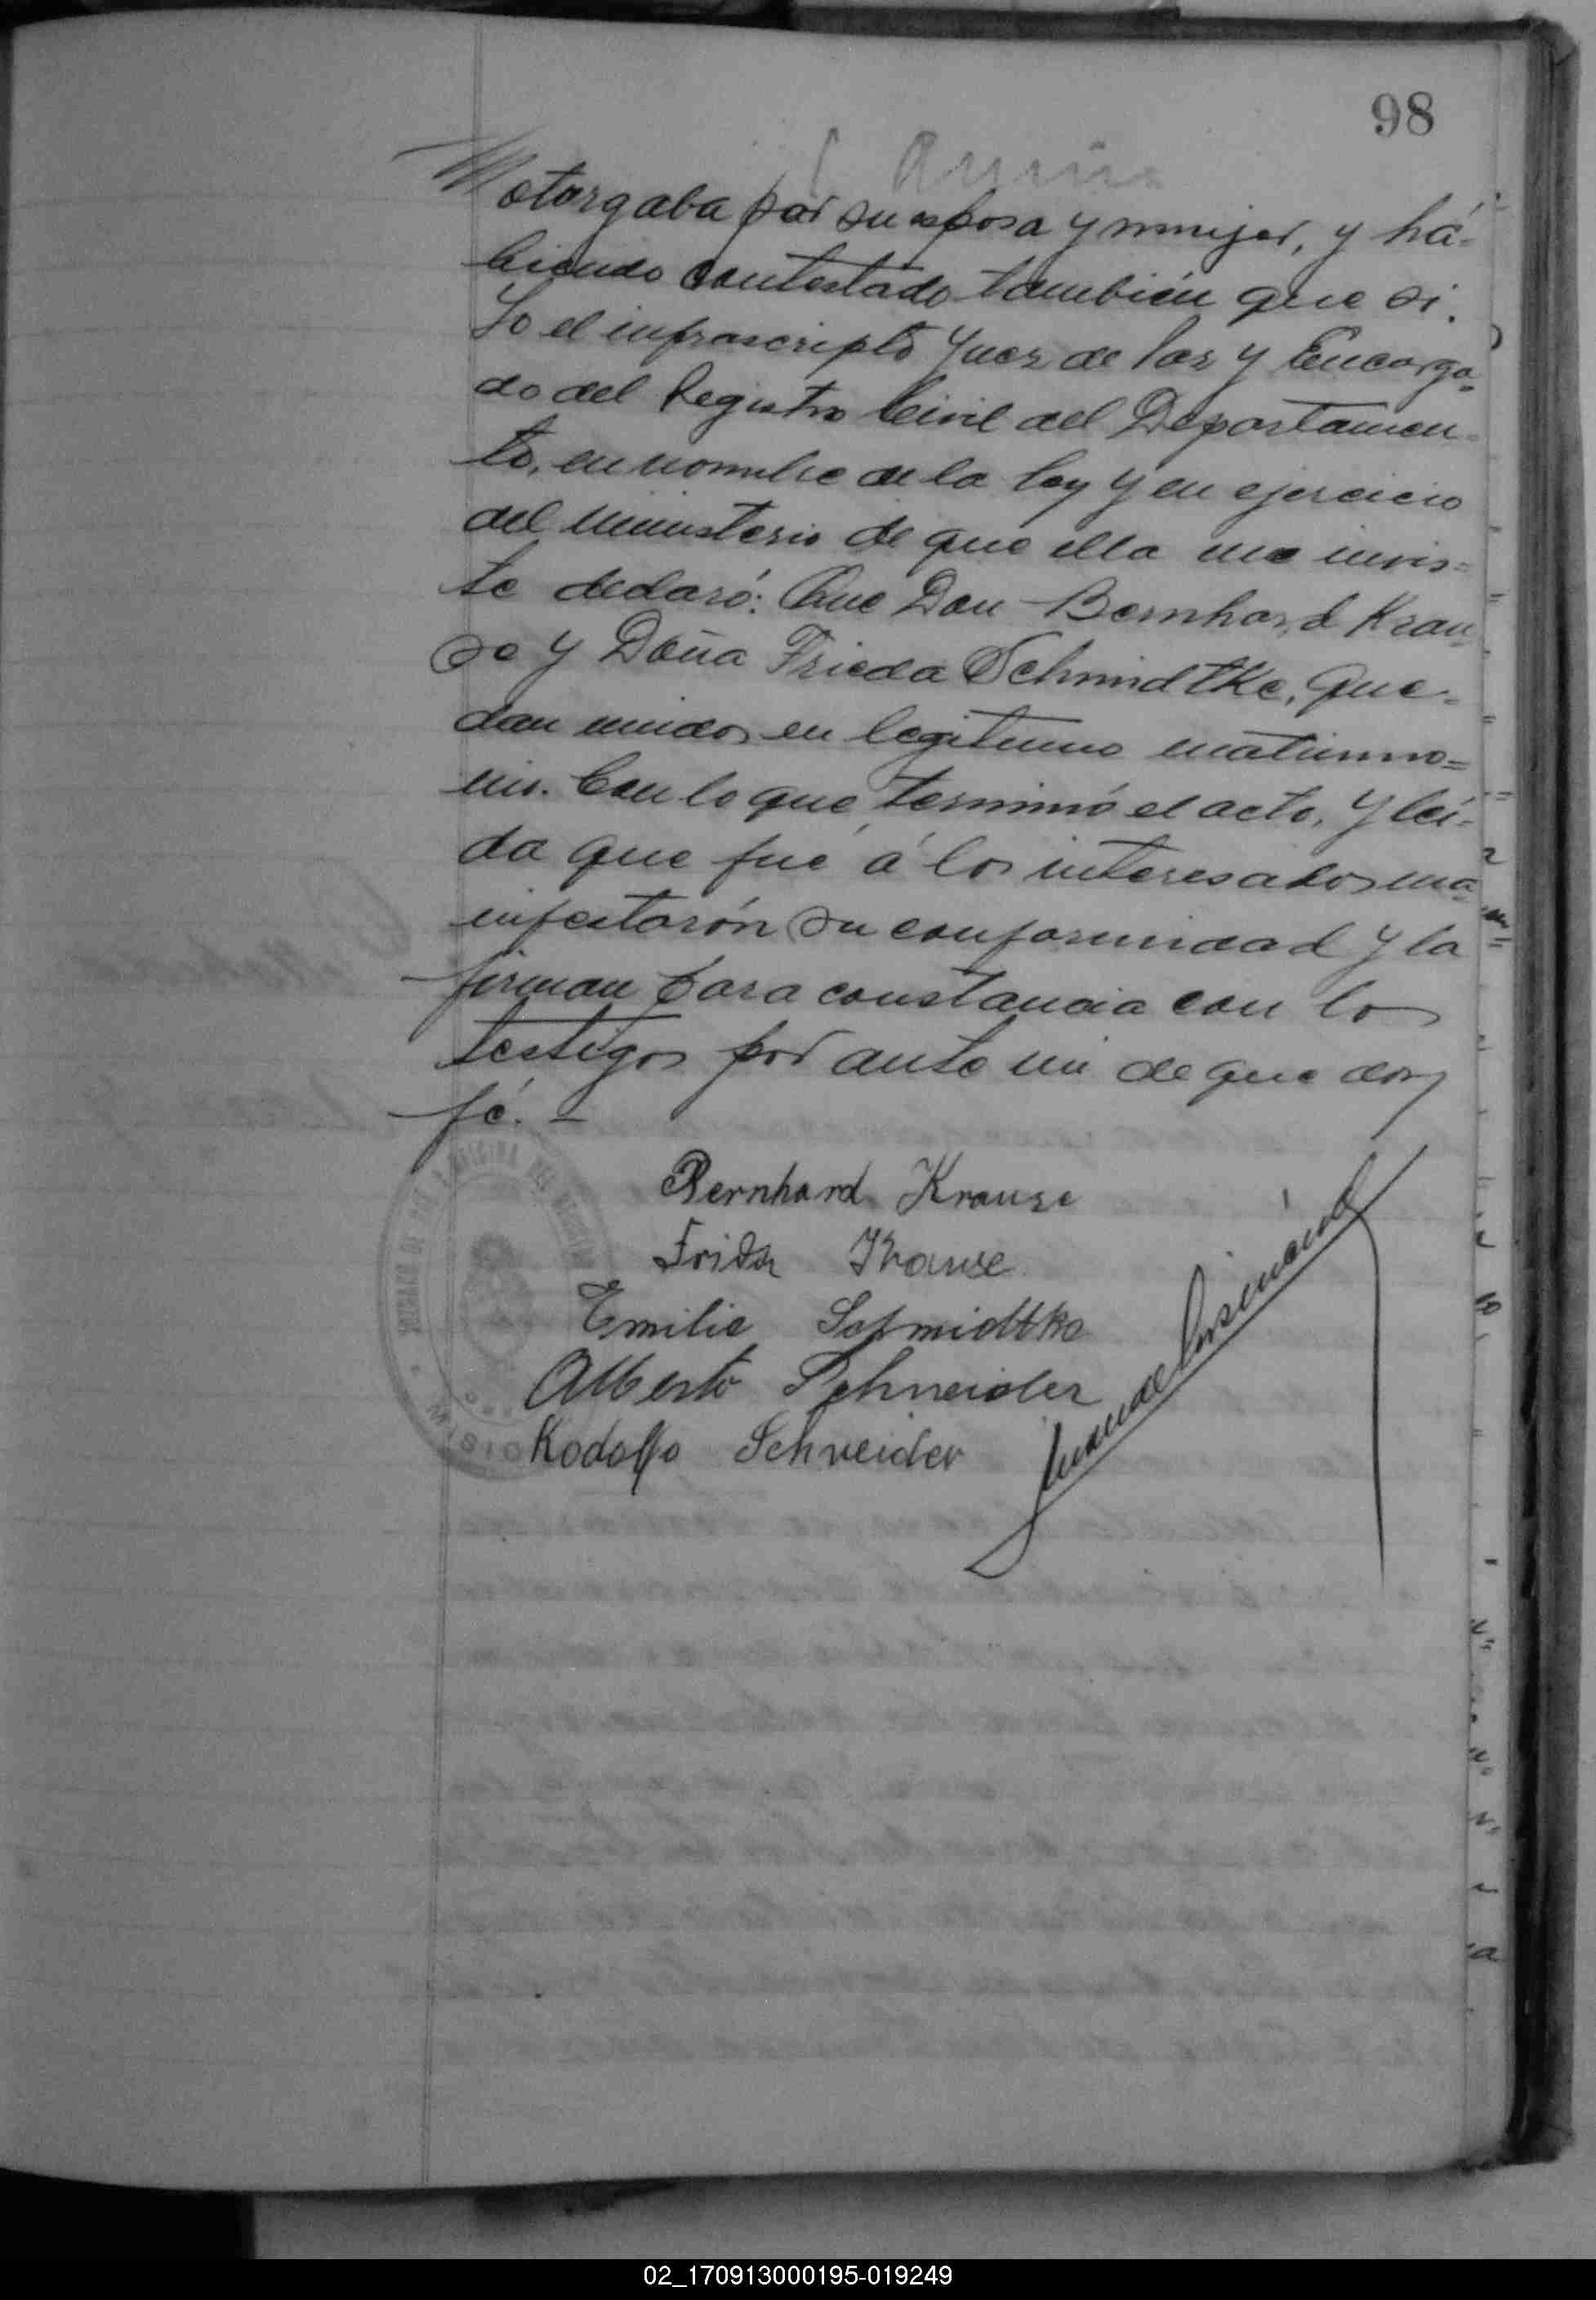 98
otorgaba por su esposa y mujer, y há=
biendo contestado también que si.
Yo el infrascripto Juez de Paz y Encarga=
do del Registro Civil del Departamen=
to, en nombre de la ley y en ejercicio
del ministerio de que ella me invis=
te declaró: Que Don Bernhard Krau=
se y Doña Frieda Schmidtke, que=
dan unidos en legitimo matrimo=
nio. Con lo que terminó el acto, y leí=
da que fué á los interesados ma=
nifestarón su conformidad y la
firman para constancia con los
testigos por ante mi de que doy
fé. =
Bernhard Krause
Frida Krause
Emilie Schmidtke
Alberto Schneider
Rodolfo Schneider
Juan de
JUZGADO DE PAZ OFICINA DEL REGISTRO
MISIO
02_170913000195-019249